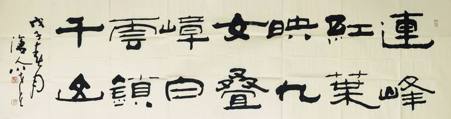 連峰
紅葉
映九
女叠
嶂白
雲鎖
千山
戊子春月